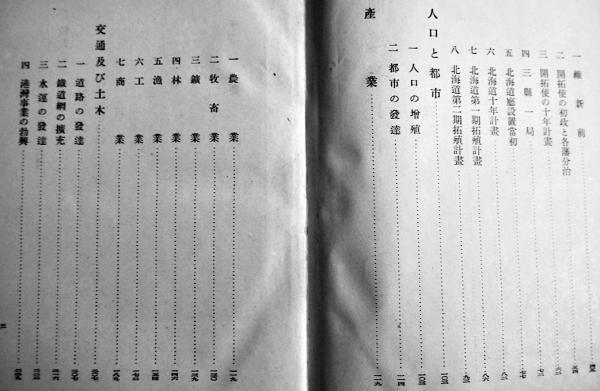 一 維新前
二 開拓使の初政と各藩分治
三 開拓使の十年計畫
四 三縣一局
五 北海道廳設置當初
六 北海道十年計畫
七 北海道第一期拓殖計畫
八 北海道第二期拓殖計畫
人口と都市
一 人口の增殖
二 都市の發達
產業
一 農業
二 牧畜業
三 鑛業
四 林業
五 漁業
六 工業
七 商業
交通及び土木
一 道路の發達
二 鐵道網の擴充
三 水運の發達
四 港灣事業の勃興